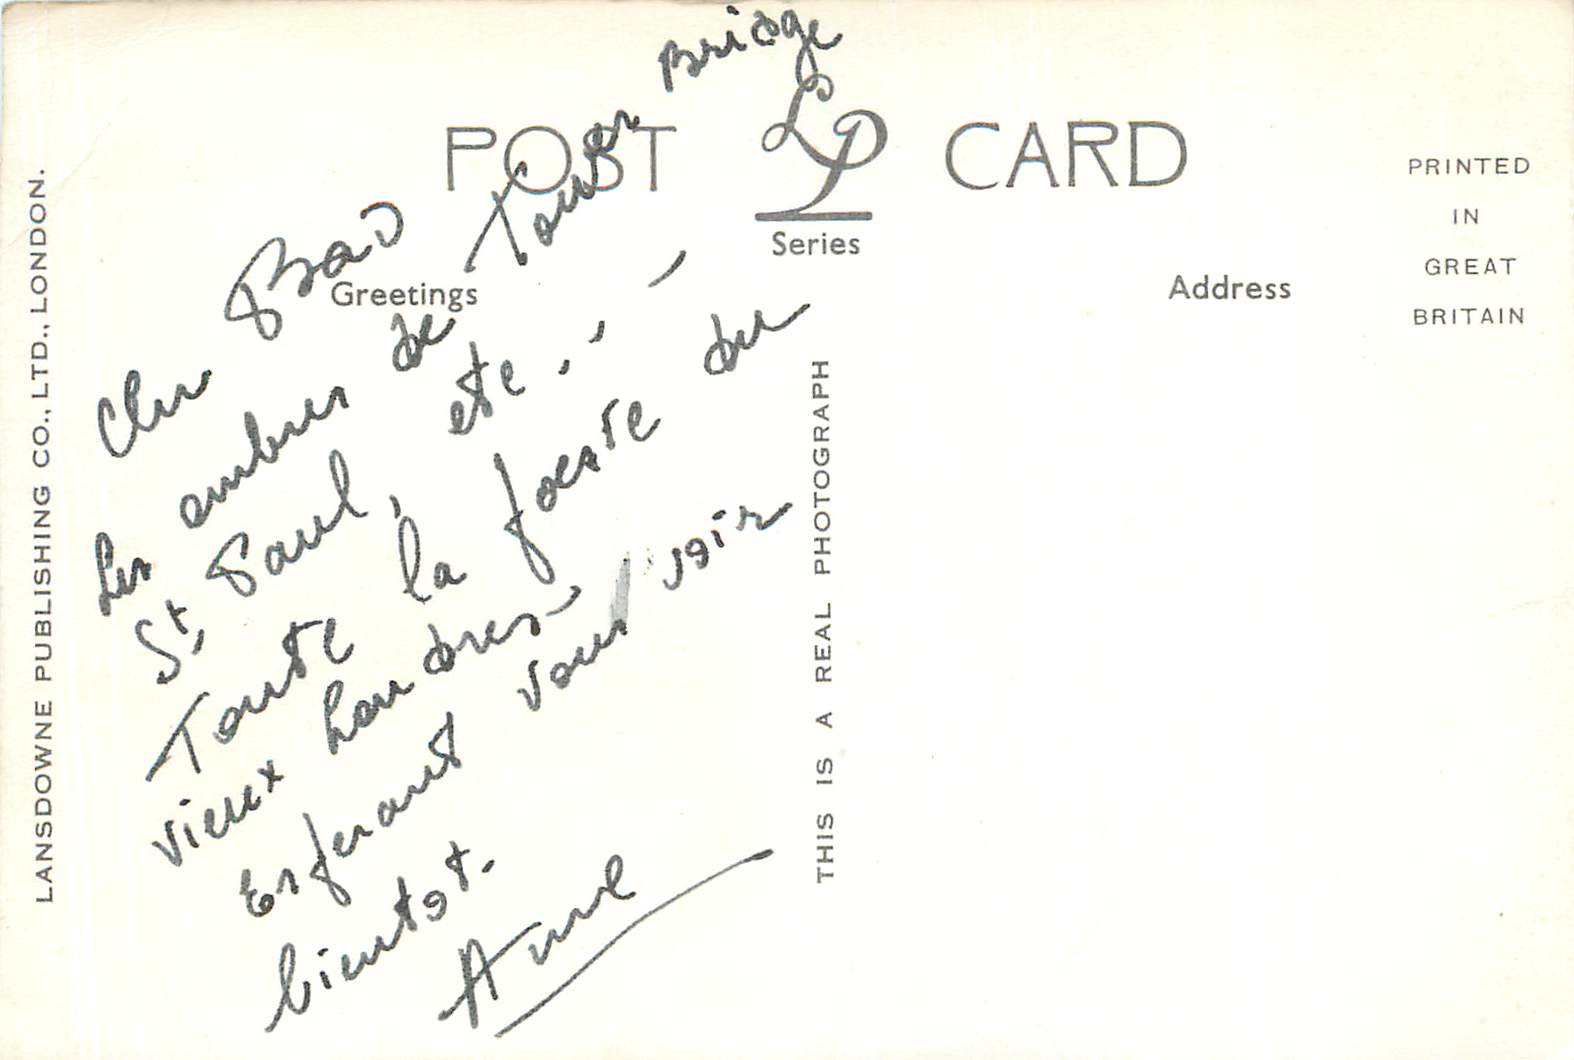 POST CARD
LP
Series
Greetings
Address
PRINTED
IN
GREAT
BRITAIN
LANSDOWNE PUBLISHING CO., LTD., LONDON.
THIS IS A REAL PHOTOGRAPH
Cher Bao
Les ombres de Tower Bridge
St, Paul, etc . . -
Toute la poesie du
vieux Londres -
Esperant vous voir
bientot.
Anne